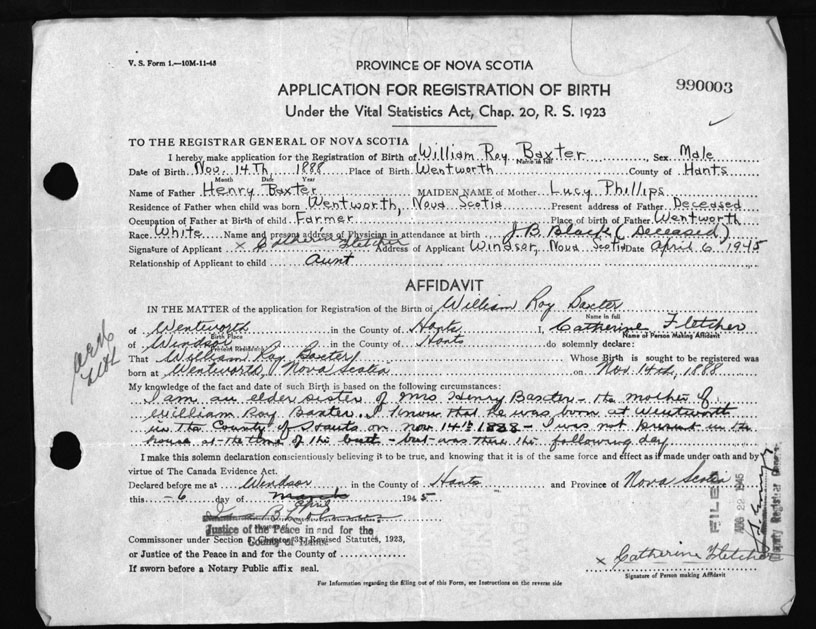 V. S. Form 1.—10M-11-43
PROVINCE OF NOVA SCOTIA
APPLICATION FOR REGISTRATION OF BIRTH
990003
Under the Vital Statistics Act, Chap. 20, R. S. 1923
TO THE REGISTRAR GENERAL OF NOVA SCOTIA
I hereby make application for the Registration of Birth of William Roy Baxter Sex Male
Name in full
Date of Birth Nov. 14Th, 1888 Place of Birth Wentworth County of Hants
Month Date Year
Name of Father Henry Baxter MAIDEN NAME of Mother Lucy Phillips
Residence of Father when child was born Wentworth, Nova Scotia Present address of Father Deceased
Occupation of Father at Birth of child Farmer Place of birth of Father Wentworth
Race White Name and present address of Physician in attendance at birth J. B. Black (Deceased)
Signature of Applicant x Catherine Fletcher Address of Applicant Windsor, Nova Scotia Date April 6 1945
Relationship of Applicant to child Aunt
AFFIDAVIT
IN THE MATTER of the application for Registration of the Birth of William Roy Baxter
Name in full
of Wentworth in the County of Hants I, Catherine Fletcher
Birth Place Name of Person Making Affidavit
of Windsor in the County of Hants do solemnly declare:
Present Residence
That William Roy Baxter Whose Birth is sought to be registered was
born at Wentworth, Nova Scotia on Nov. 14th, 1888
My knowledge of the fact and date of such Birth is based on the following circumstances:
I am an elder sister of Mrs Henry Baxter - the mother of
William Roy Baxter. I know that he was born at Wentworth
in the County of Hants on Nov 14th 1888 - I was not present in the
house at the time of the birth - but was there the following day
I make this solemn declaration conscientiously believing it to be true, and knowing that it is of the same force and effect as if made under oath and by
virtue of The Canada Evidence Act.
Declared before me at Windsor in the County of Hants and Province of Nova Scotia
this 6 day of March April 1945
Justice of the Peace in and for the
County of Hants
Commissioner under Section Chapter 38, Revised Statutes, 1923,
or Justice of the Peace in and for the County of
If sworn before a Notary Public affix seal.
FILED
AUG 22 1945
Deputy Registrar General
x Catherine Fletcher
Signature of Person making Affidavit
For Information regarding the filling out of this Form, see Instructions on the reverse side